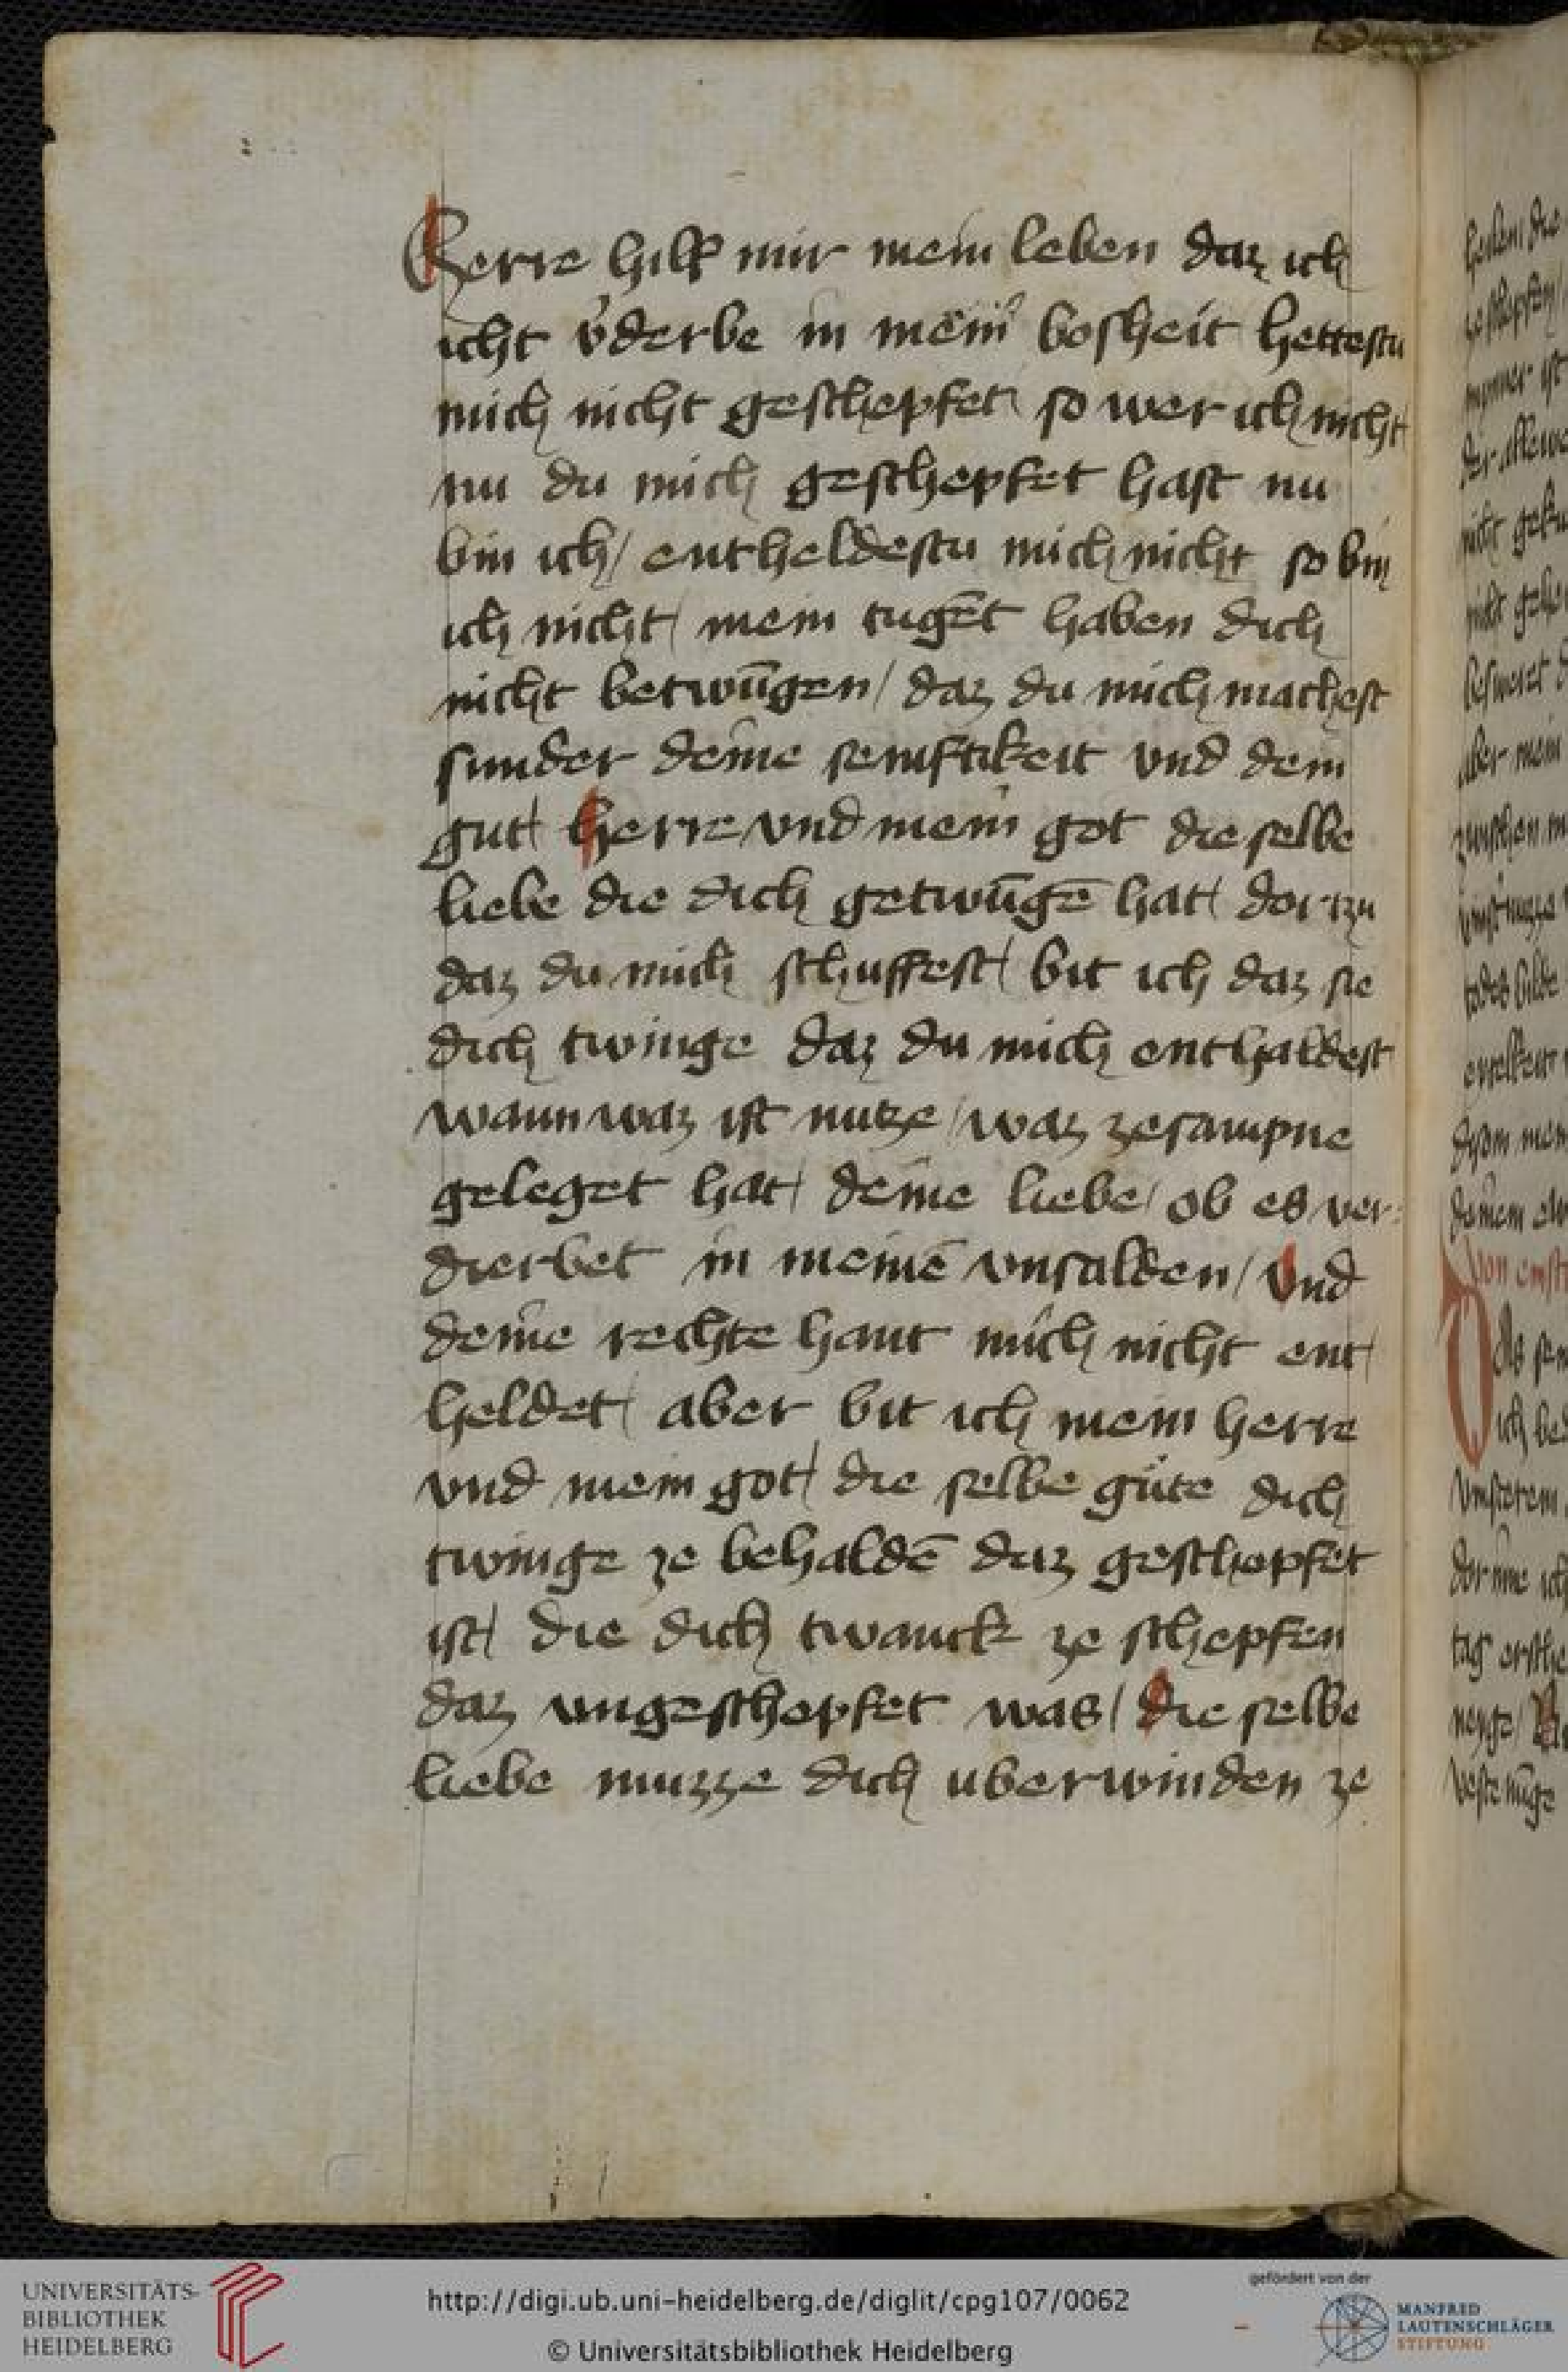 Herre hilf mir mein leben daz ich
icht v̓derbe in mein̓ bosheit hettestu
mich nicht geschepfet / so wer ich nicht
nu du mich geschepfet hast nu
bin ich / entheldestu mich nicht so bin
ich nicht / mein tugēt haben dich
nicht betwūgen / daz du mich machest
sunder deine semftikeit vnd dein
gut / Herre vnd mein got die selbe
liebe die dich getwūgē hat / dor tzu
daz du mich schuffest / bit ich daz sie
dich twinge daz du mich enthaldest
wann waz ist nutze / waz zesampne
geleget hat / deine liebe / ob es ver:
dierbet in meinē vnsalden / Vnd
deine rechte hant mich nicht ent
heldet / aber bit ich mein herre
vnd mein got / die selbe güte dich
twinge ze behaldē daz geschepfet
ist / die dich twanck ze schepfen
daz vngeschepfet was / die selbe
liebe muzze dich uberwinden ze
UNIVERSITÄTS-
BIBLIOTHEK
HEIDELBERG
http://digi.ub.uni-heidelberg.de/diglit/cpg107/0062
© Universitätsbibliothek Heidelberg
gefördert von der
MANFRED
LAUTENSCHLÄGER
STIFTUNG